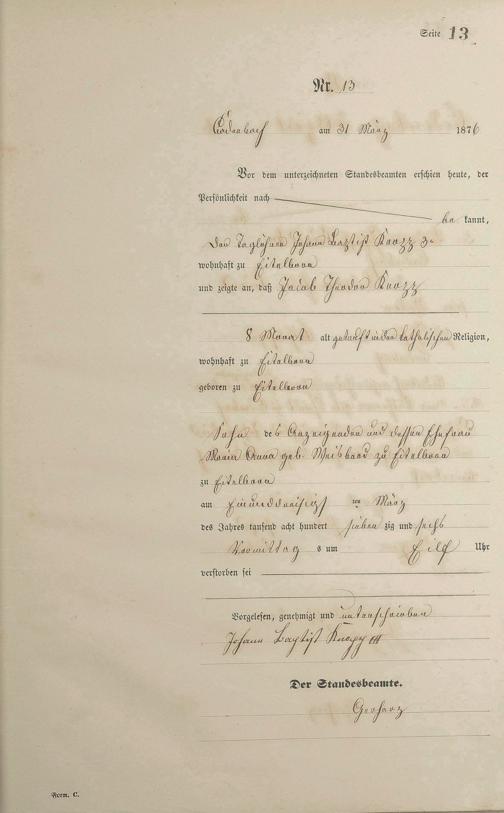 Seite 13
Nr. 13
Cadenbach am 31 März 1876
Vor dem unterzeichneten Standesbeamten erschien heute, der
Persönlichkeit nach
be kannt,
Der Taglöhner Johann Baptist
wohnhaft zu Eitelborn
und zeigte an, daß Jacob Theodor
8 Monat alt getauft in der katholischen Religion,
wohnhaft zu Eitelborn
geboren zu Eitelborn
Sohn des Anzeigenden und dessen Ehefrau
Maria Anna geb. zu Eitelborn
zu Eitelborn
am Einunddreisigs ten März
des Jahres tausend acht hundert sieben zig und sechs
Vormittag s um Eilf Uhr
verstorben sei
Vorgelesen, genehmigt und unterschrieben
Johann Baptist
Der Standesbeamte.
Gerharz
Form. C.